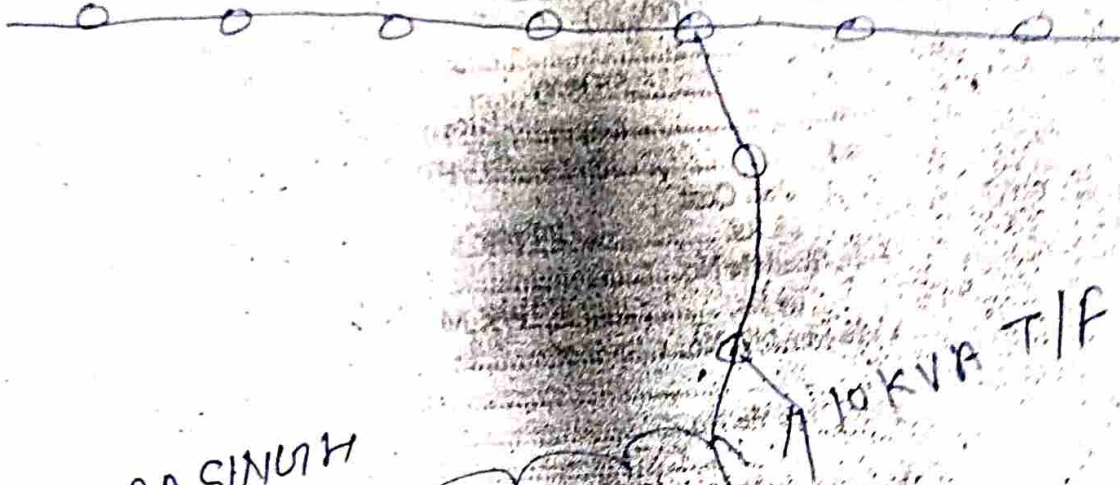 10 KVA T/F
SINGH